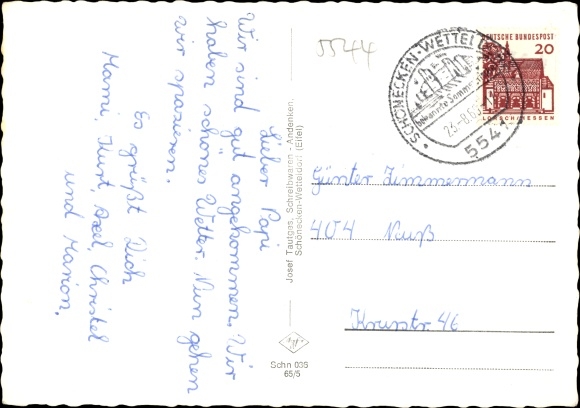 Lieber Papi
Wir sind gut angekommen. Wir
haben schönes Wetter. Nun gehen
wir spazieren.
Es grüßt Dich
Mami, Kurt, Axel, Christel
und Marion.
Josef Tautges, Schreibwaren - Andenken,
Schönecken-Wetteldorf (Eifel)
Schn 035
65/5
5544
SCHÖNECKEN-WETTELDORF
23.-8.65
554
DEUTSCHE BUNDESPOST
20
LORSCH/HESSEN
Günter Zimmermann
404 Neuß
46